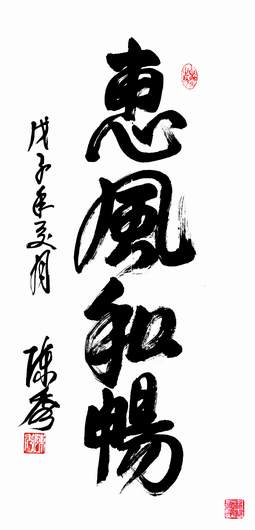 惠風和暢
戊子年夏月
陳秀